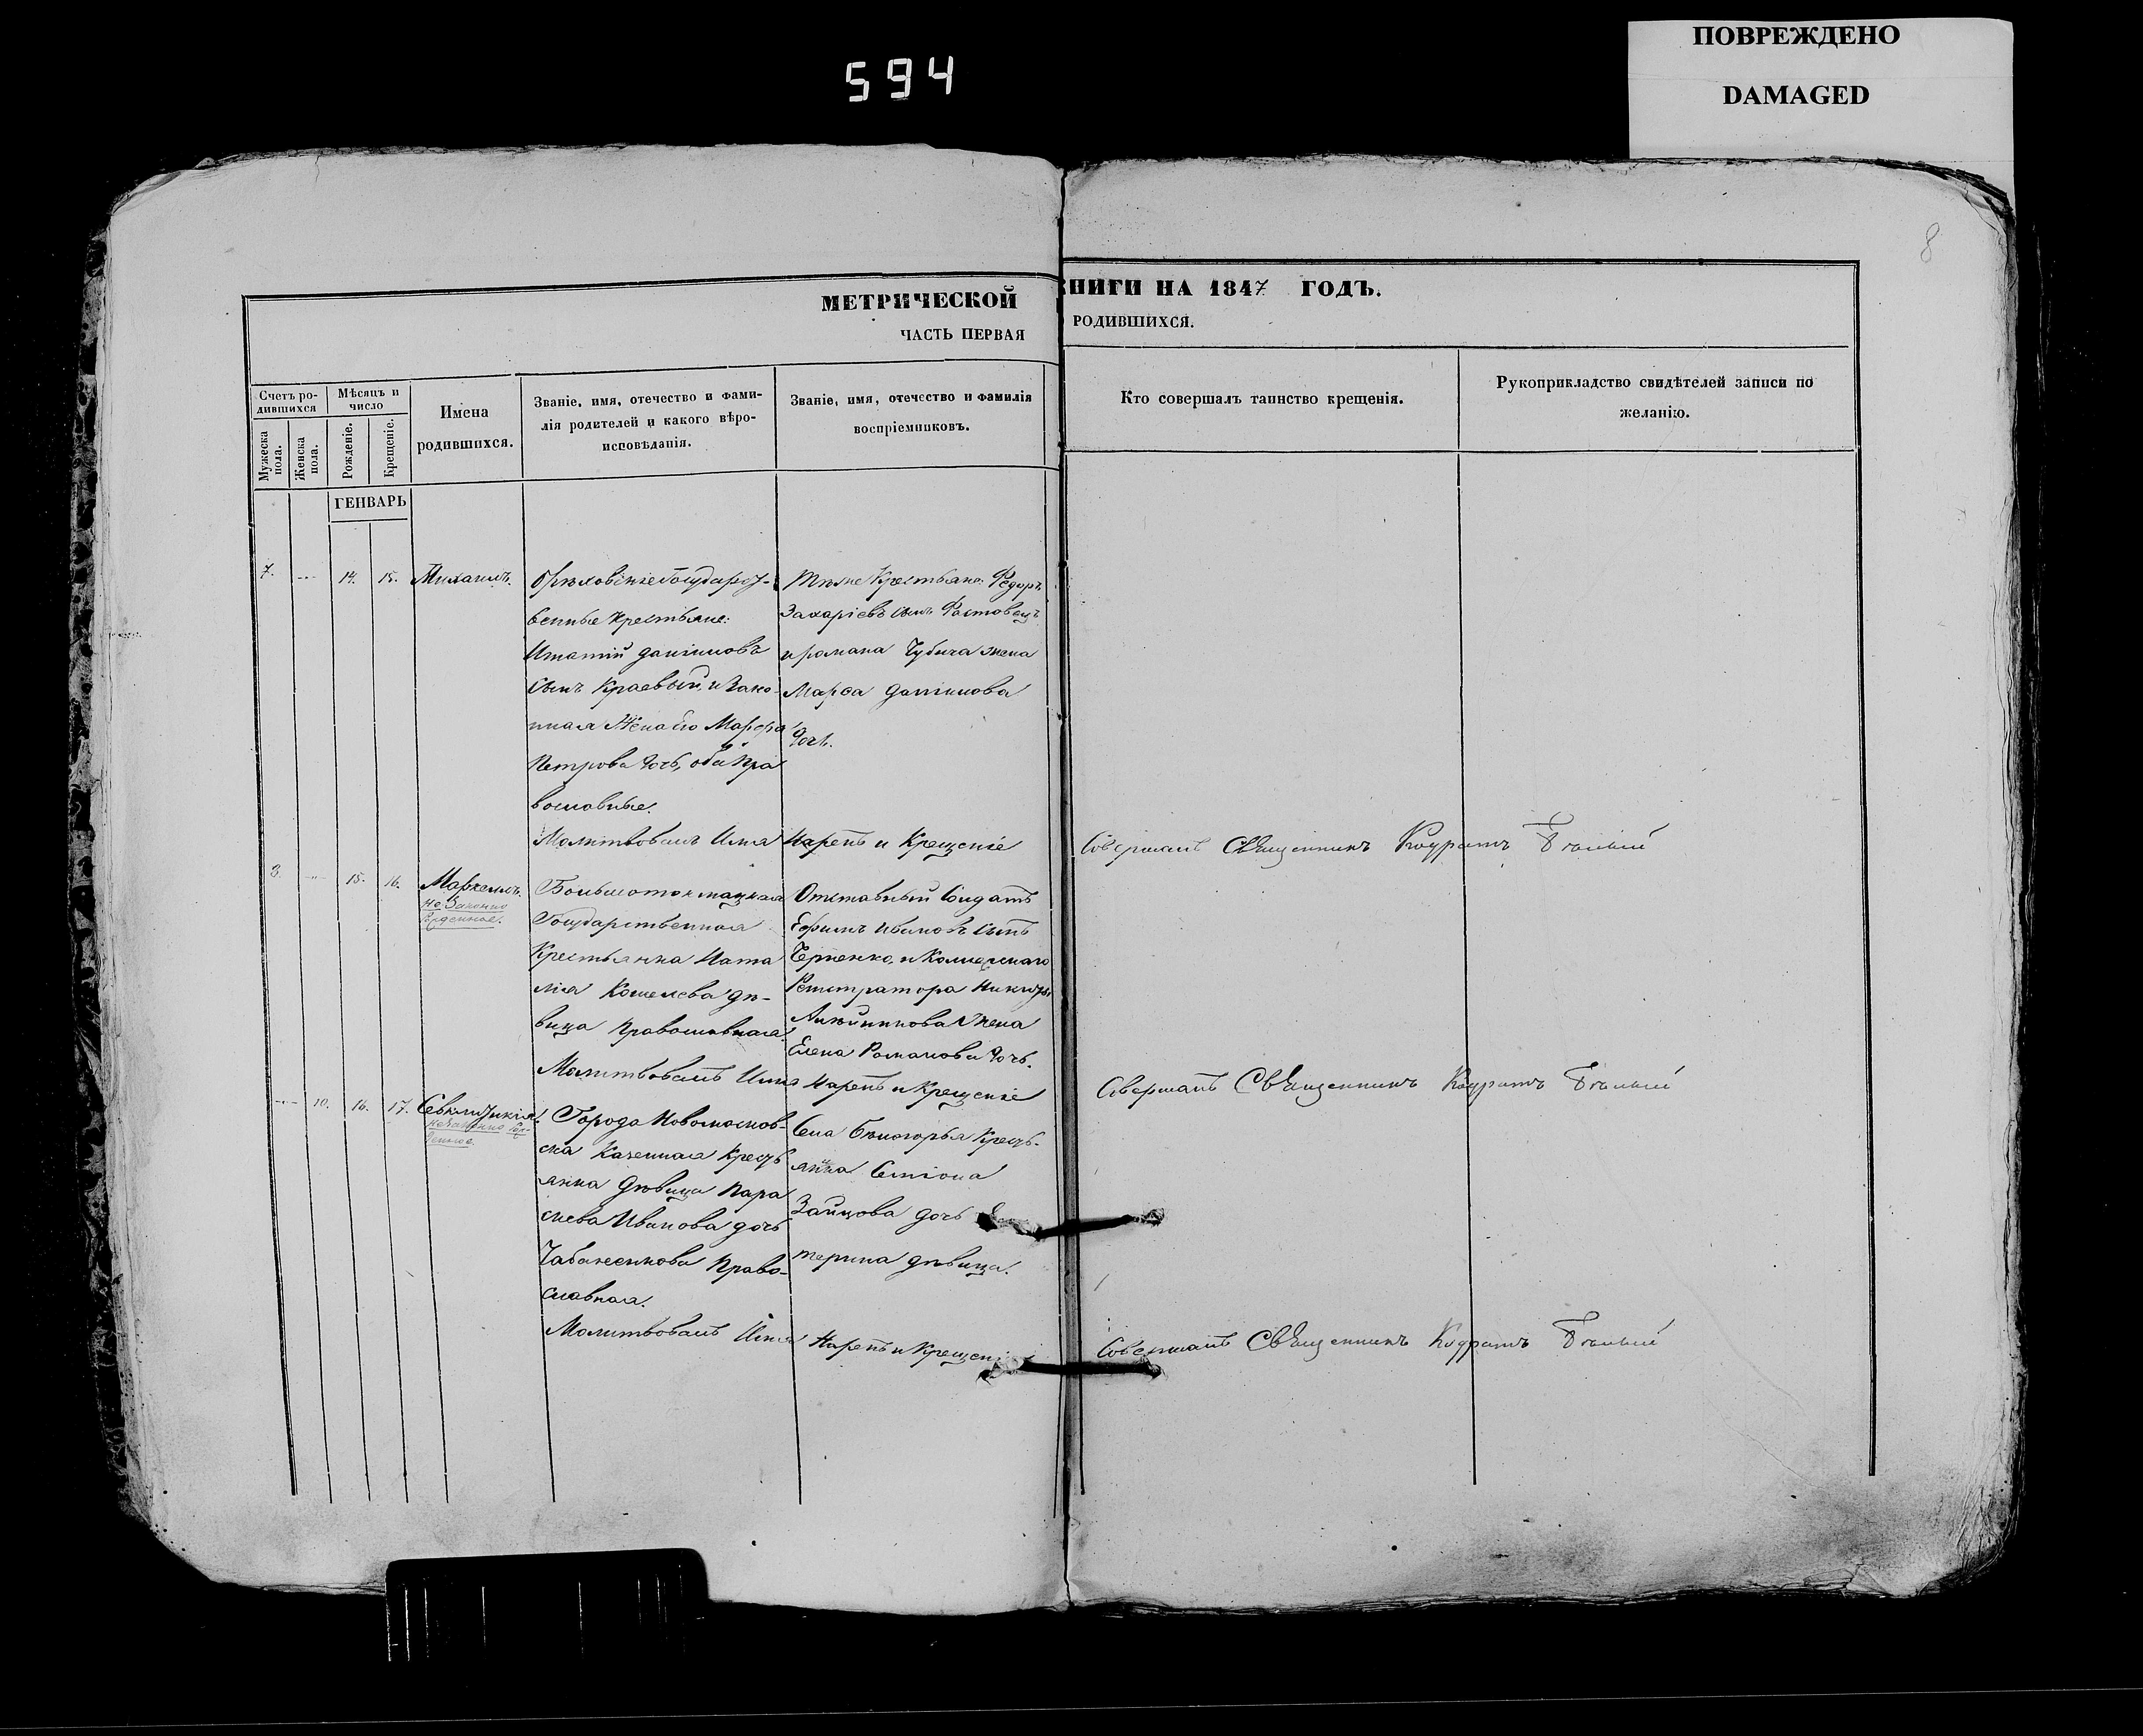 594
ПОВРЕЖДЕНО
DAMAGED
8
МЕТРИЧЕСКОЙ КНИГИ НА 1847 ГОДЪ.
ЧАСТЬ ПЕРВАЯ РОДИВШИХСЯ.
Счетъ ро-
дившихся
Мужеска пола.
Женска пола.
Мѣсяцъ и
число
Рожденіе.
Крещеніе.
Имена
родившихся.
Званіе, имя, отечество и фами-
лія родителей и какого вѣро-
исповѣданія.
Званіе, имя, отечество и фамилія
воспріемниковъ.
Кто совершалъ таинство крещенія.
Рукоприкладство свидѣтелей записи по
желанію.
ГЕНВАРЬ
7. 14. 15. Михаилъ.
Орѣховскіе Государст-
венные крестьяне:
Игнатій Даниловъ
сынъ Краевый, и зако-
нная жена его Марфа
Петрова дочь, оба пра
вославные.
Тѣже Крестьяне: Федоръ
Захаріевъ сынъ Ростовецъ
и романа Чубича жена
Марѳа Данилова
дочь.
Молитвовалъ Имя Нарекъ и Крещеніе Совершалъ Священникъ Кодратъ Бѣлый
8. 15. 16. Маркеллъ.
Незаконно
Рожденное.
Большотокмацкая
Государственная
Крестьянка Ната
лія Кошелева дѣ-
вица православная.
Отставный Солдатъ
Ефимъ Ивановъ сынъ
и Коллежскаго
Регистратора Никиты
жена
Елена Романова дочь.
Молитвовалъ Имя Нарекъ и Крещеніе Совершалъ Священникъ Кодратъ Бѣлый
10. 16. 17.
Незаконно Рож-
денное.
Города Новомосков-
ска Казенная Кресть
янка дѣвица Пара
скева Иванова дочь
Чабаненкова Право-
славная.
Села Бѣлогорья Кресть-
янина Семіона
Зайцова дочь
терина дѣвица.
Молитвовалъ Имя Нарекъ и Крещені Совершалъ Священникъ Кодратъ Бѣлый